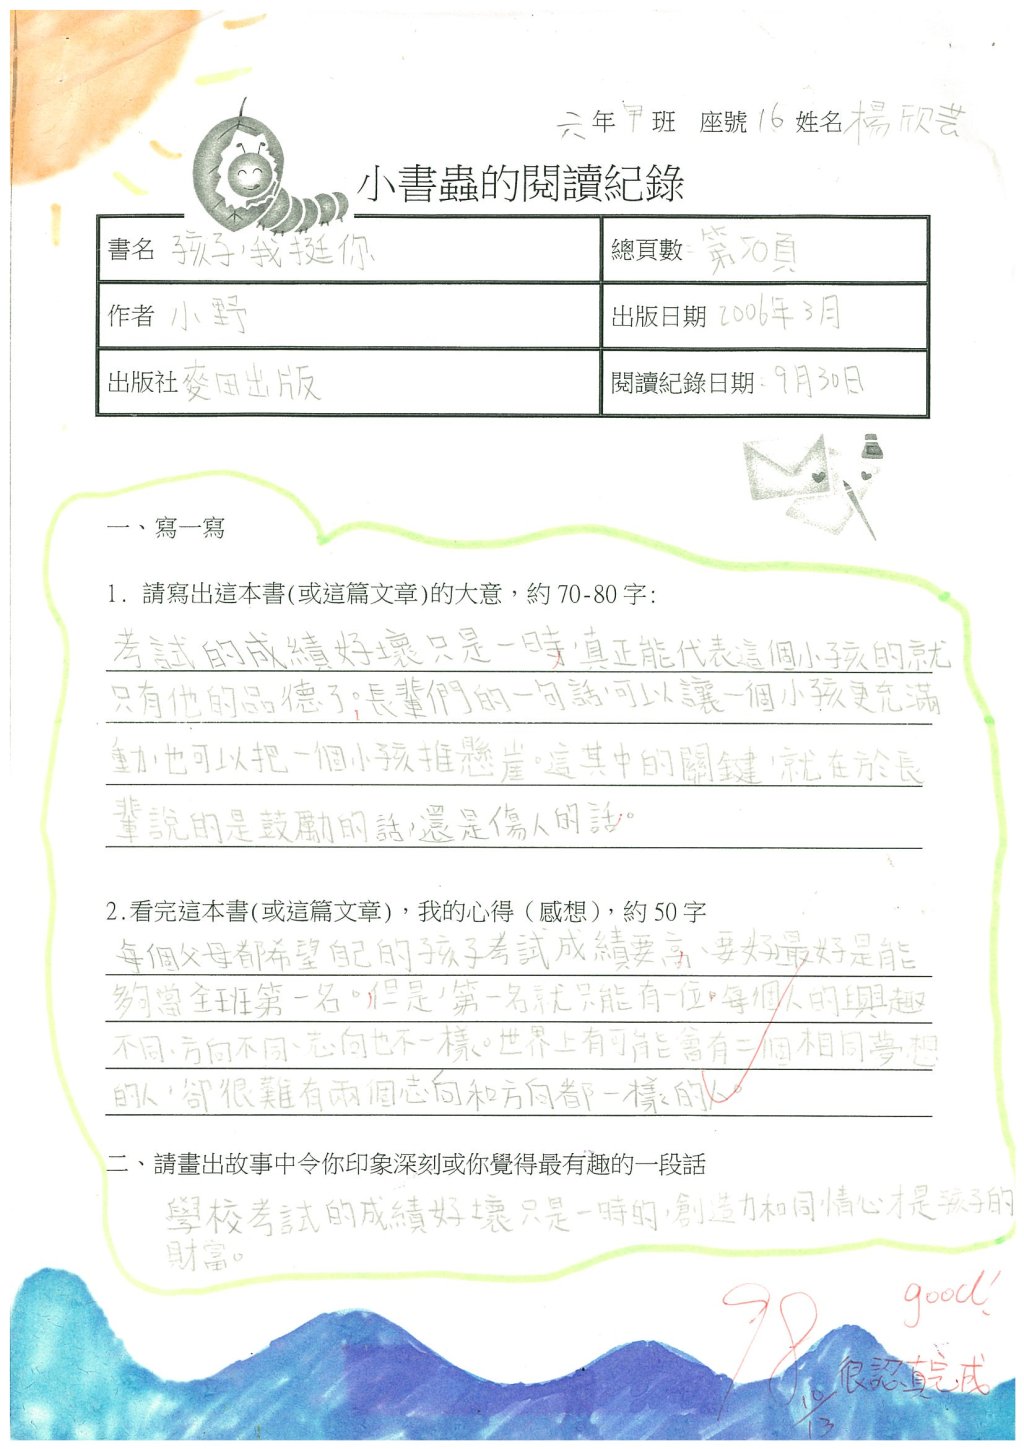 六年甲班 座號16 姓名楊欣芸
小書蟲的閱讀紀錄
書名 孩子,我挺你
總頁數 第50頁
作者 小野
出版日期 2006年3月
出版社 麥田出版
閱讀紀錄日期:9月30日
一、寫一寫
1. 請寫出這本書(或這篇文章)的大意,約70-80字:
考試的成績好壞只是一時,真正能代表這個小孩的就
只有他的品德了。長輩們的一句話,可以讓一個小孩更充滿
動,也可以把一個小孩推懸崖。這其中的關鍵,就在於長
輩說的是鼓勵的話,還是傷人的話。
2.看完這本書(或這篇文章),我的心得(感想),約50字
每個父母都希望自己的孩子考試成績要高、要好,最好是能
夠當全班第一名。但是,第一名就只能有一位。每個人的興趣
不同、方向不同、志向也不一樣。世界上有可能會有二個相同夢想
的人,卻很難有兩個志向和方向都一樣的人。
二、請畫出故事中令你印象深刻或你覺得最有趣的一段話
學校考試的成績好壞只是一時的,創造力和同情心才是孩子的
財富。
98
good!
很認真完成
10/13